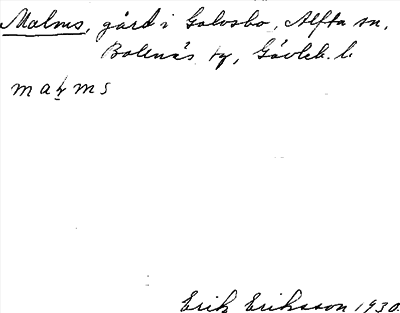 Malms, gård i Galvsbo, Alfta sn,
Bollnäs tg, Gävleb. l.
maḷms
Erik Eriksson 1930